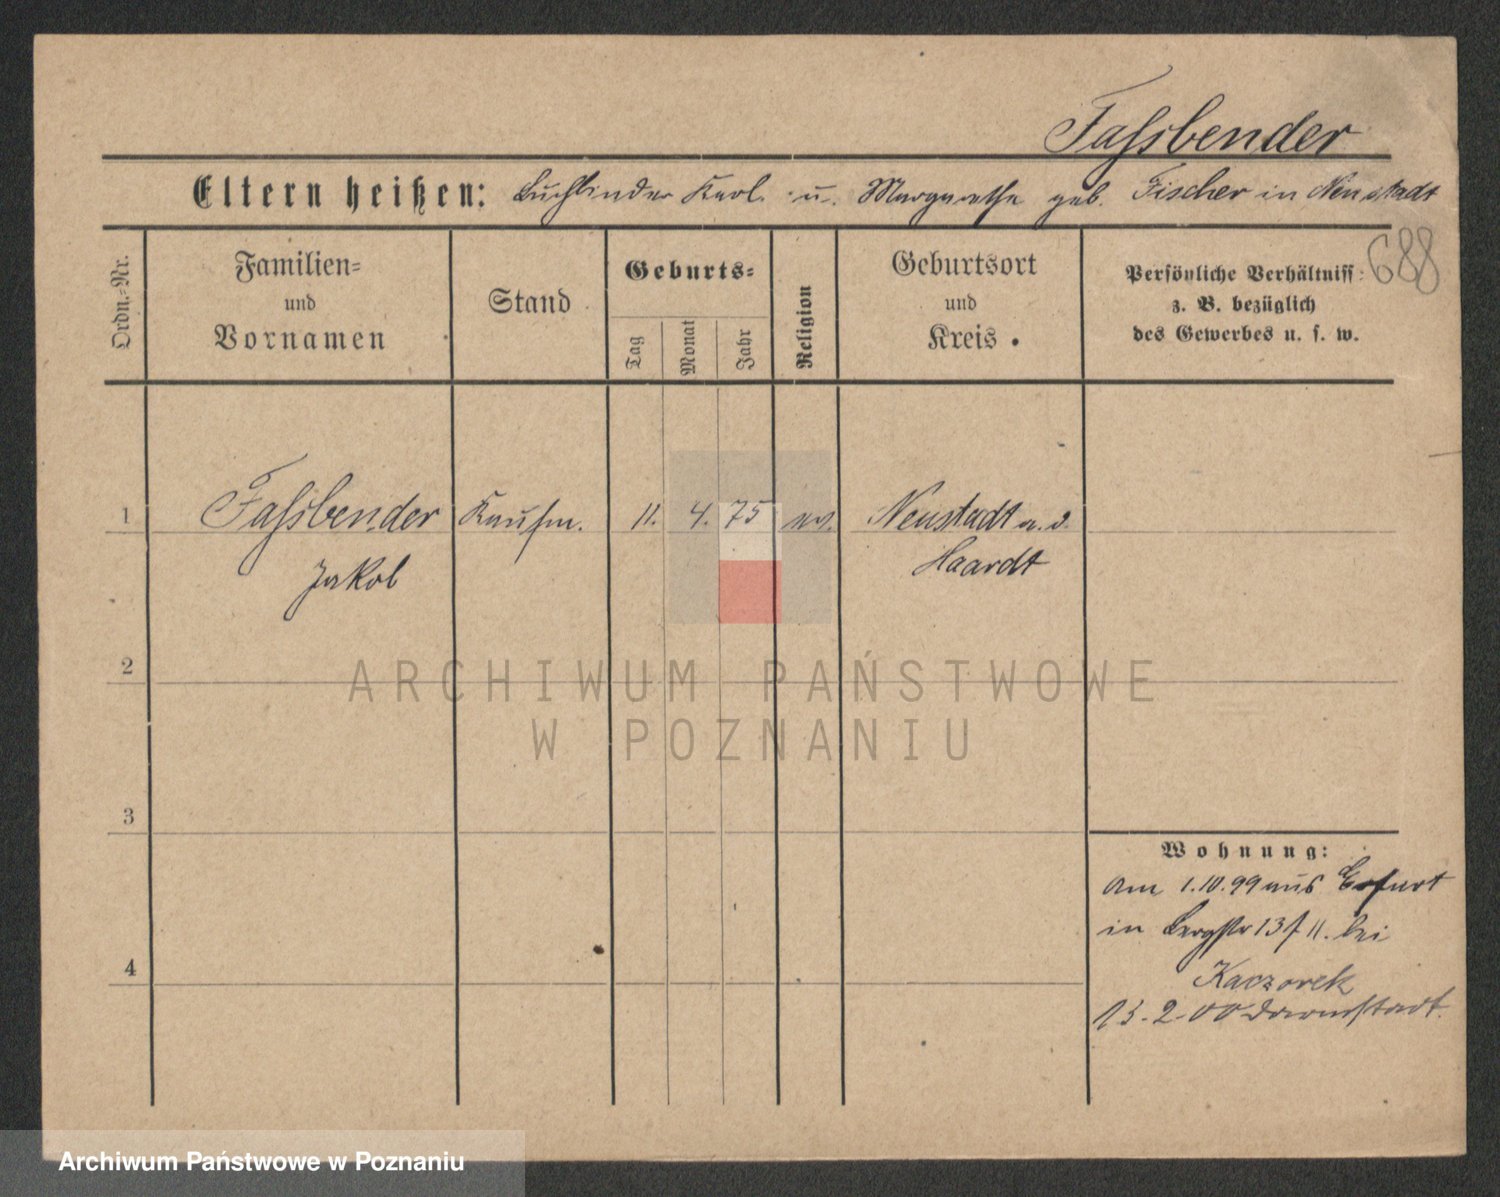 Fassbender
Eltern heißen: Buchbinder Karl u. Margarethe geb. Fischer in Neustadt
688
Ordn.-Nr.
Familien-
und
Vornamen
Stand
Geburts-
Tag
Monat
Jahr
Religion
Geburtsort
und
Kreis
Persönliche Verhältniss
z. B. bezüglich
des Gewerbes u. s. w.
1 Fassbender Kaufm. 11. 4. 75 ev. Neustadt a. d.
Jakob Haardt
2
ARCHIWUM PAŃSTWOWE
W POZNANIU
3
Wohnung:
Am 1.10.99 aus Erfurt
in Bergstr 13 f II. bei
4
Kaczorek
13.2.00 Darmstadt.
Archiwum Państwowe w Poznaniu